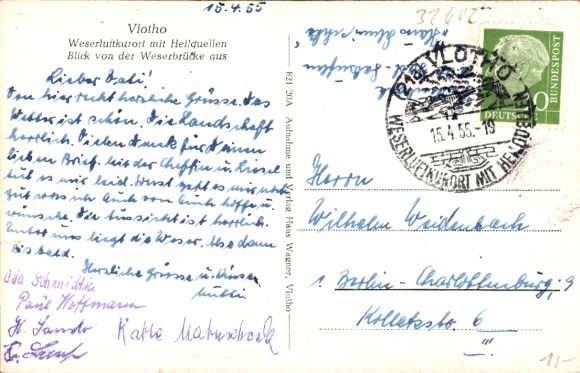 15.4.55
Vlotho
Weserluftkurort mit Heilquellen
Blick von der Weserbrücke aus
Lieber Vati!
Von hier recht herzliche Grüsse. Das
Wetter ist schön. Die Landschaft
herrlich. Vielen Dank für Deinen
lieben Brief. bei der Cheffin u. Liesel
tut es mir leid. Sonst geht es mir
gut was ich auch von Euch hoffe u.
wünsche. Die Aussicht ist herrlich.
Unter uns liegt die Weser. Also dann
bis bald.
Herzliche Grüsse u. Küsse
Mutti
Paul Hoffmann
H. Lando
Käthe
82 20A Aufnahme und Verlag Hans Wagner, Vlotho
(21a) VLOTHO
15.4.55.-19
WESERLUFTKURORT MIT
DEUTSCHE BUNDESPOST
Herrn
Wilhelm Weidenbach
1. Berlin-Charlottenburg, 9
Kollatzstr. 6
III